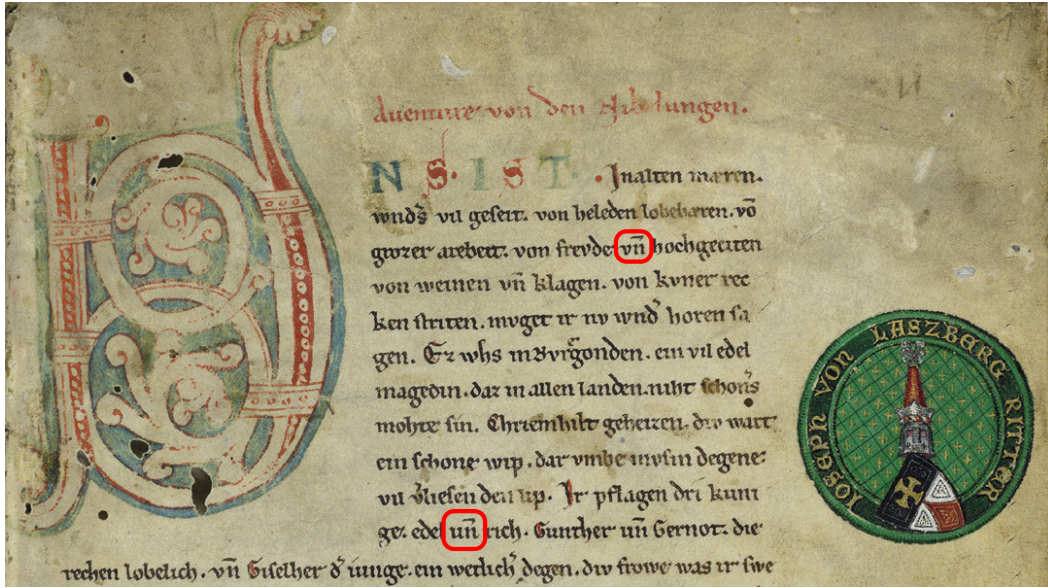 Auenture von den Nibelungen.
VNS IST. Jnalten mæren.
wnds̄ vil geseit. von heleden lobebæren. vō
grozer arebeit. von frevde vn̄ hochgeciten
von weinen vn̄ klagen. von kvner rec
ken striten. mvget ir nv wnd̄ horen sa
gen. Ez whs in Bvrgonden. ein vil edel
magedin. daz in allen landen. niht schons̄
mohte sin. Chriemhilt geheizen. div wart
ein schone wip. dar vmbe mvsin degene
vil v̄liesen den lip. Jr pflagen dri kuni
ge. edel vn̄ rich. Gunther vn̄ Gernot. die
rechen lobelich. vn̄ Giselher d̄ iunge. ein wetlich̄ degen. div frowe was ir swe
JOSEPH VON LASZBERG RITTER